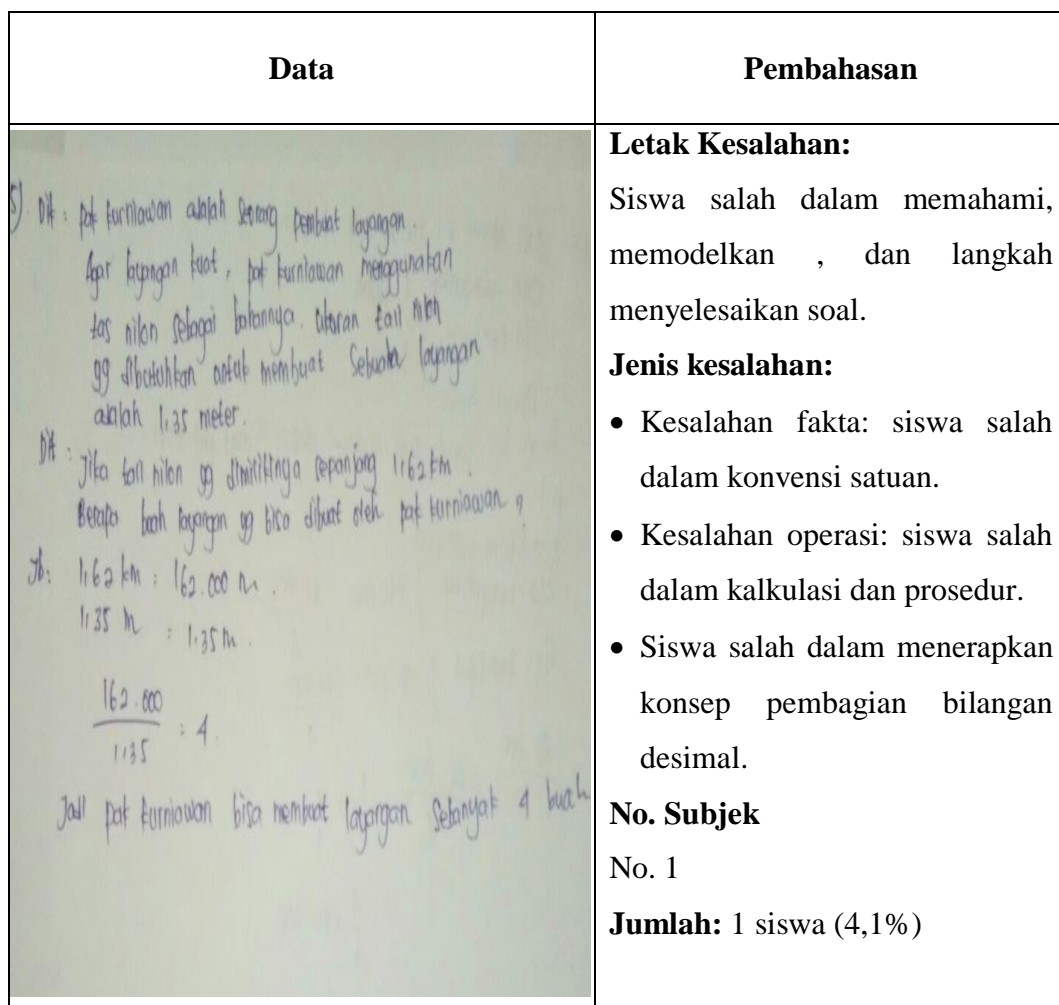 Data
Pembahasan
5). Dik : pak kurniawan adalah seorang pembuat layangan.
Agar layangan kuat, pak kurniawan menggunakan
tas nilon sebagai bahannya. ukuran tali nilon
yg dibutuhkan untuk membuat sebuah layangan
adalah 1,35 meter.
Dit : Jika tali nilon yg dimilikinya sepanjang 1,62 km.
Berapa buah layangan yg bisa dibuat oleh pak kurniawan ?
Jb: 1,62 km = 162.000 m.
1,35 m = 1,35 m.
162.000
1,35
= 4.
Jadi pak kurniawan bisa membuat layangan sebanyak 4 buah
Letak Kesalahan:
Siswa salah dalam memahami,
memodelkan , dan langkah
menyelesaikan soal.
Jenis kesalahan:
• Kesalahan fakta: siswa salah
dalam konvensi satuan.
• Kesalahan operasi: siswa salah
dalam kalkulasi dan prosedur.
• Siswa salah dalam menerapkan
konsep pembagian bilangan
desimal.
No. Subjek
No. 1
Jumlah: 1 siswa (4,1%)